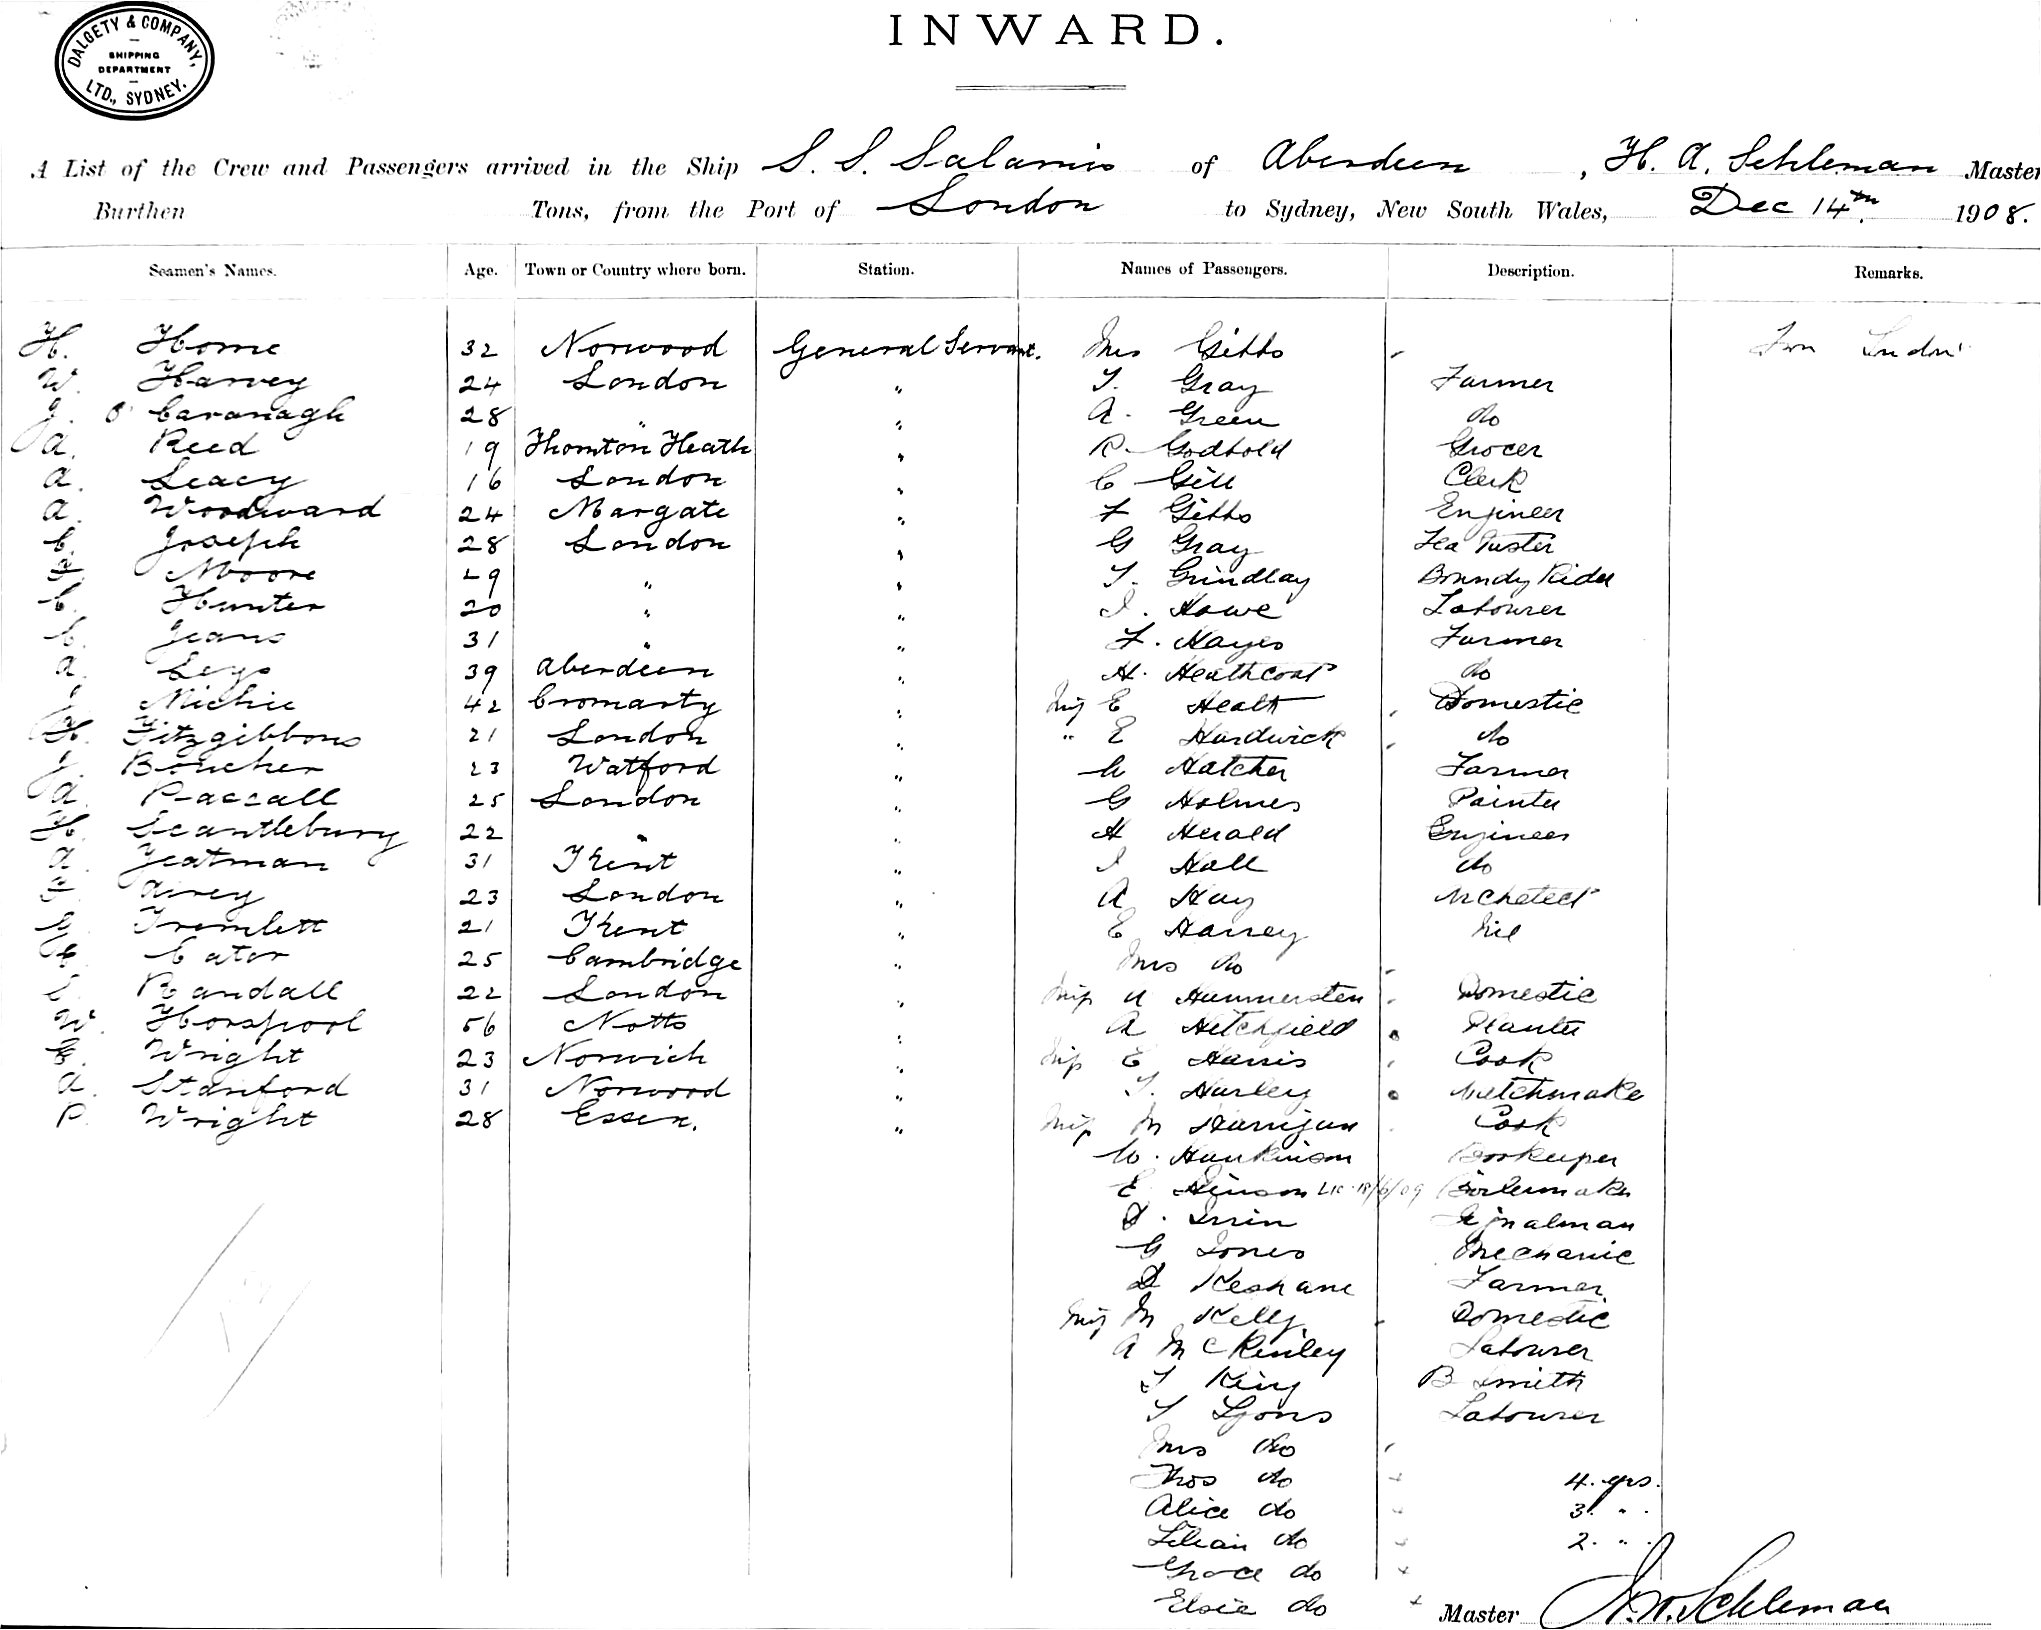 DALGETY & COMPANY,
SHIPPING
DEPARTMENT
LTD., SYDNEY.
INWARD.
A List of the Crew and Passengers arrived in the Ship S. S. Salamis of Aberdeen, H. A. Schleman Master
Burthen Tons, from the Port of London to Sydney, New South Wales, Dec 14th 1908.
Seamen's Names. Age. Town or Country where born. Station. Names of Passengers. Description. Remarks.
H. Home 32 Norwood General Servant. Mrs Gibbs London
W. Harvey 24 London " T. Gray Farmer
J. O'Cavanagh 28 " " A. Green do
A. Reed 19 Thornton Heath " R. Godbold Grocer
A. Leacy 16 London " C Gill Clerk
A. Woodward 24 Margate " F Gibbs Engineer
C. Joseph 28 London " G Gray Tea Taster
F. Moore 29 " " T. Grindlay Boundy Rider
C. Hunter 20 " " J. Howe Labourer
C. Jeans 31 " " F. Hayes Farmer
A. Leys 39 Aberdeen " H. Heathcoat do
J. Michie 42 Cromarty " Miss E Domestic
H. Fitzgibbons 21 London " " E Hardwick do
J. Boucher 23 Watford " W Hatcher Farmer
A. 25 London " G Holmes Painter
H. Scantlebury 22 " " H Herald Engineer
A. Yeatman 31 Kent " J Hall do
F. Airey 23 London " A Hay Archetect
G. Tremlett 21 Kent " E Harvey Nil
C. Cator 25 Cambridge " Mrs do
S. Randall 22 London " Miss A Hammersten Domestic
W. Horspool 56 Notts " A Hitchfield Planter
G. Wright 23 Norwich " Miss E Harris Cook
A. Stanford 31 Norwood " T. Hurley Watchmake
P. Wright 28 Essex. " Miss M Harrigan Cook
W. Hankinson Bookeeper
E Hinson 18/6/09 Boilermaker
D. Irvin Signalman
G Jones Mechanic
D Keshane Farmer
Miss M Kelly Domestic
A McKinley Labourer
J King B Smith
T Lyons Labourer
Mrs do
Thos do 4. yrs.
Alice do 3. "
Lilian do 2. "
Grace do
Elsie do
Master H. A. Schleman